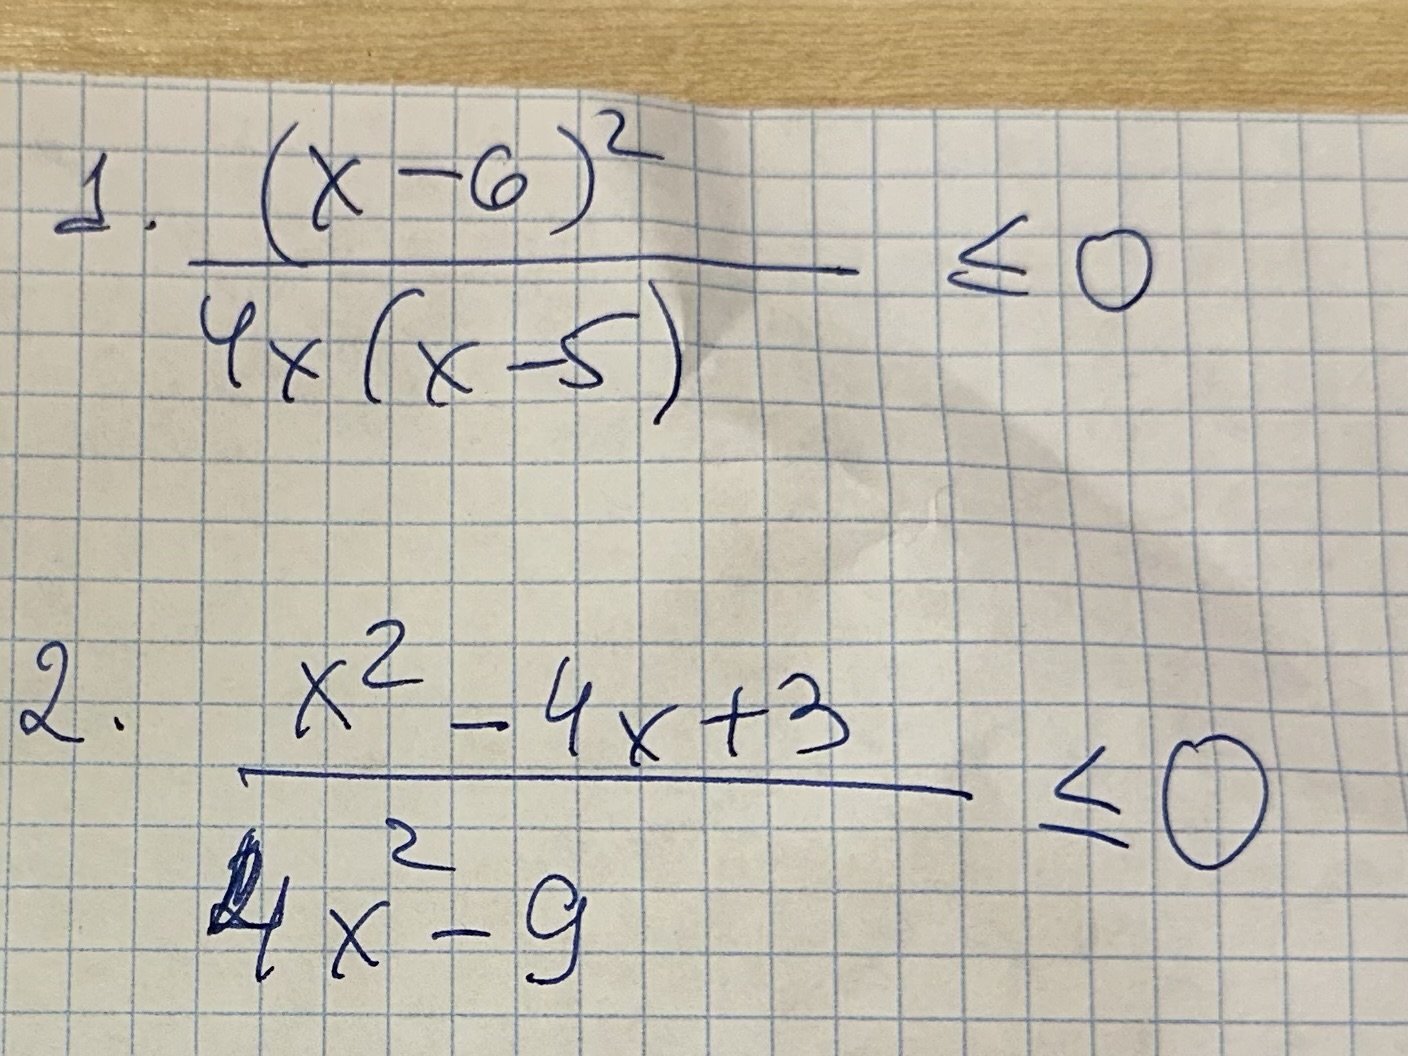 1. (x-6)² / 4x(x-5) ≤ 0
2. x² - 4x + 3 / 4x² - 9 ≤ 0